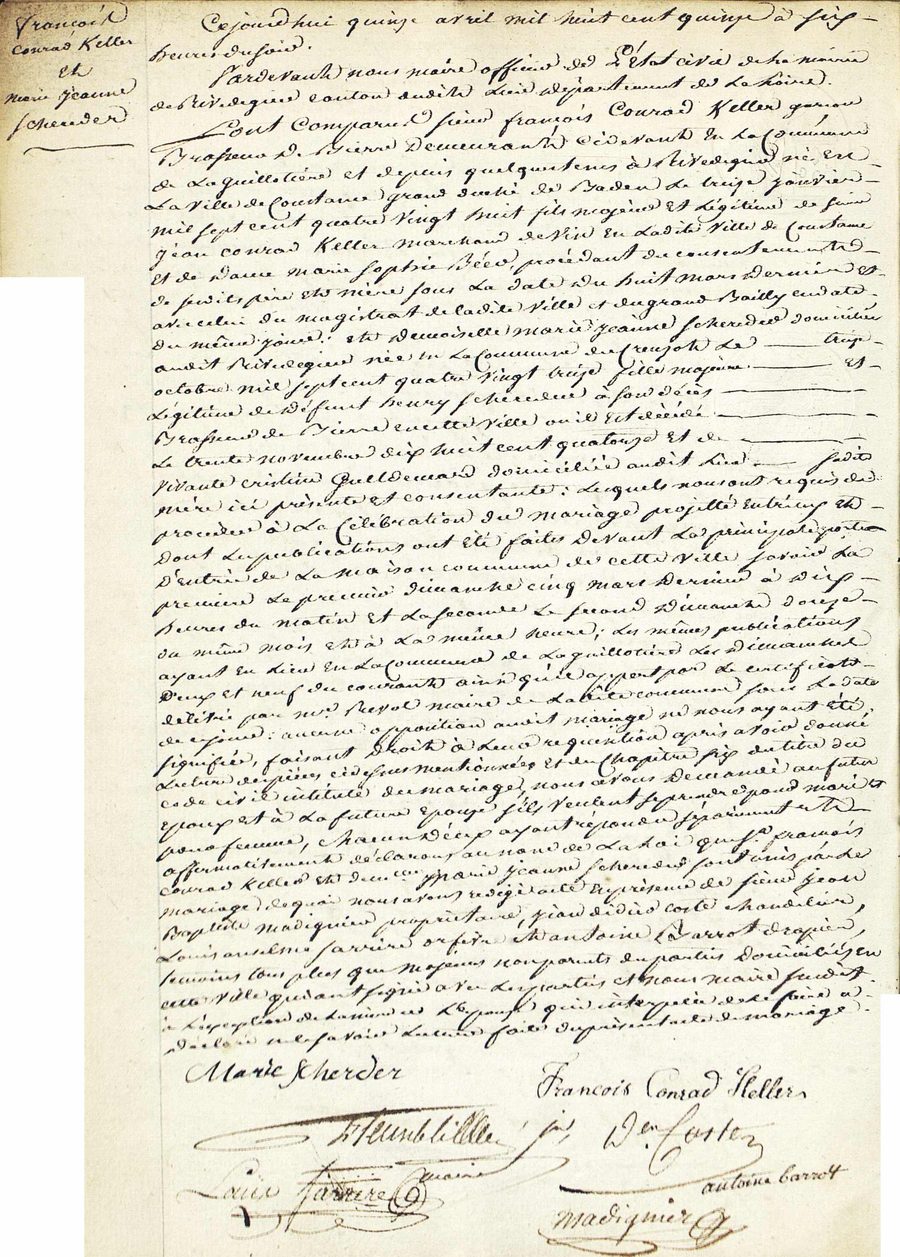 François
Conrad Keller
et
marie jeanne
schereder
Cejourd'hui quinze avril mil huit cent quinze à six
heures du soir.
Pardevant nous maire officier de L'état civil de la mairie
de Rivedegier canton dudit Lieu département de La Loire.
Sont Comparus sieur françois Conrad Keller garçon
Brasseur De Bierre Demeurant Cidevant En La Commune
de La guillotière et depuis quelque tems à Rivedegier né En
La Ville de Constance grand duché de Baden Le treize janvier
mil sept cent quatre vingt huit fils majeur et Légitime de sieur
jean conrad Keller marchand de vin En Ladite Ville de Constance
et de Dame marie sophie procédant du consentement
de sesdits père et mère sous la date du huit mars dernier et
avec celui du magistrat de ladite Ville et du grand Bailly en date
du même jour; et Demoiselle marie jeanne schereder domiciliée
audit Rivedegier née En La Commune du Creuzot Le treize
octobre mil sept cent quatre vingt treize fille majeure et
Légitime de Défunt henry schereder à son décès
Brasseur de Bierre en cette Ville où il est décédé
Le trente novembre dix huit cent quatorze et de
vivante cristine domiciliée audit Lieu sadite
mère ici présente et consentante: Lesquels nous ont requis de
procéder à La Célébration du mariage projetté Entr'eux et
dont Les publications ont été faites devant La principale porte
d'entrée de La maison commune de cette Ville savoir La
première Le premier dimanche cinq mars dernier à dix
heures du matin et La seconde Le second Dimanche douze
du même mois et à La même heure; Les mêmes publications
ayant eu Lieu En La Commune de La guillotière Les Dimanches
Deux et neuf du courant ainsi qu'il appert par Le certificat
délivré par mr. Revol maire de Ladite commune sous La date
de ce jour: aucune opposition audit mariage ne nous ayant été
signifiée, faisant Droit à Leur requisition après avoir donné
Lecture des pièces cidessus mentionnées et du Chapitre six du titre du
code civil intitulé du mariage, nous avons Demandé au futur
Epoux et à La future Epouse s'ils veulent se prendre pour mari et
pour femme, chacun D'eux ayant répondu séparément et
affirmativement déclarons au nom de La Loi que Sr. françois
conrad Keller et demelle marie jeanne schereder sont unis par Le
mariage de quoi nous avons redigé acte En présence de sieurs jean
Baptiste madignier propriétaire, jean didier coste chandelier,
Louis anselme farrère orfèvre et antoine Barrot drapier,
temoins tous plus que majeurs non parents des parties domiciliés en
cette Ville qui ont signé avec Les parties et nous maire susdit
à L'exception de La mère de L'Epouse qui interpelée de Le faire a
déclaré ne le savoir Lecture faite du présent acte de mariage.
Marie scherder
François Conrad Keller
jn, Dier Coste
maire
Louis farrere
antoine barrot
madignier